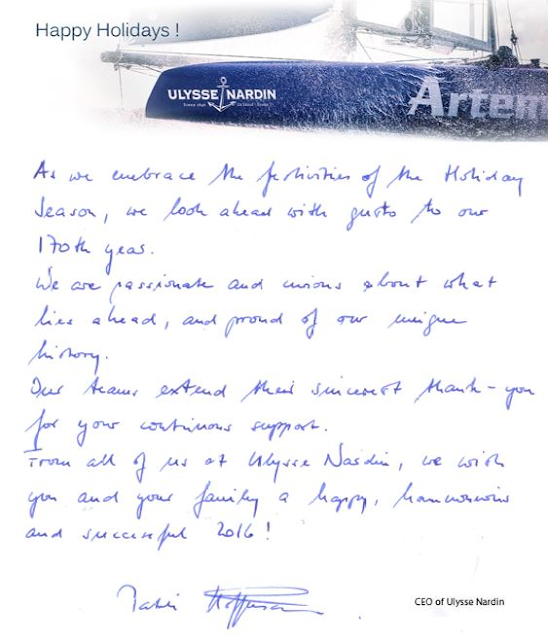 Happy Holidays !
ULYSSE NARDIN
Artem
As we embrace the festivities of the Holiday
Season, we look ahead with gusto to our
170th year.
We are passionate and curious about what
lies ahead, and proud of our unique
history.
Our teams extend their sincerest thank-you
for your continuous support.
From all of us at Ulysse Nardin, we wish
you and your family a happy, harmonious
and successful 2016!
CEO of Ulysse Nardin